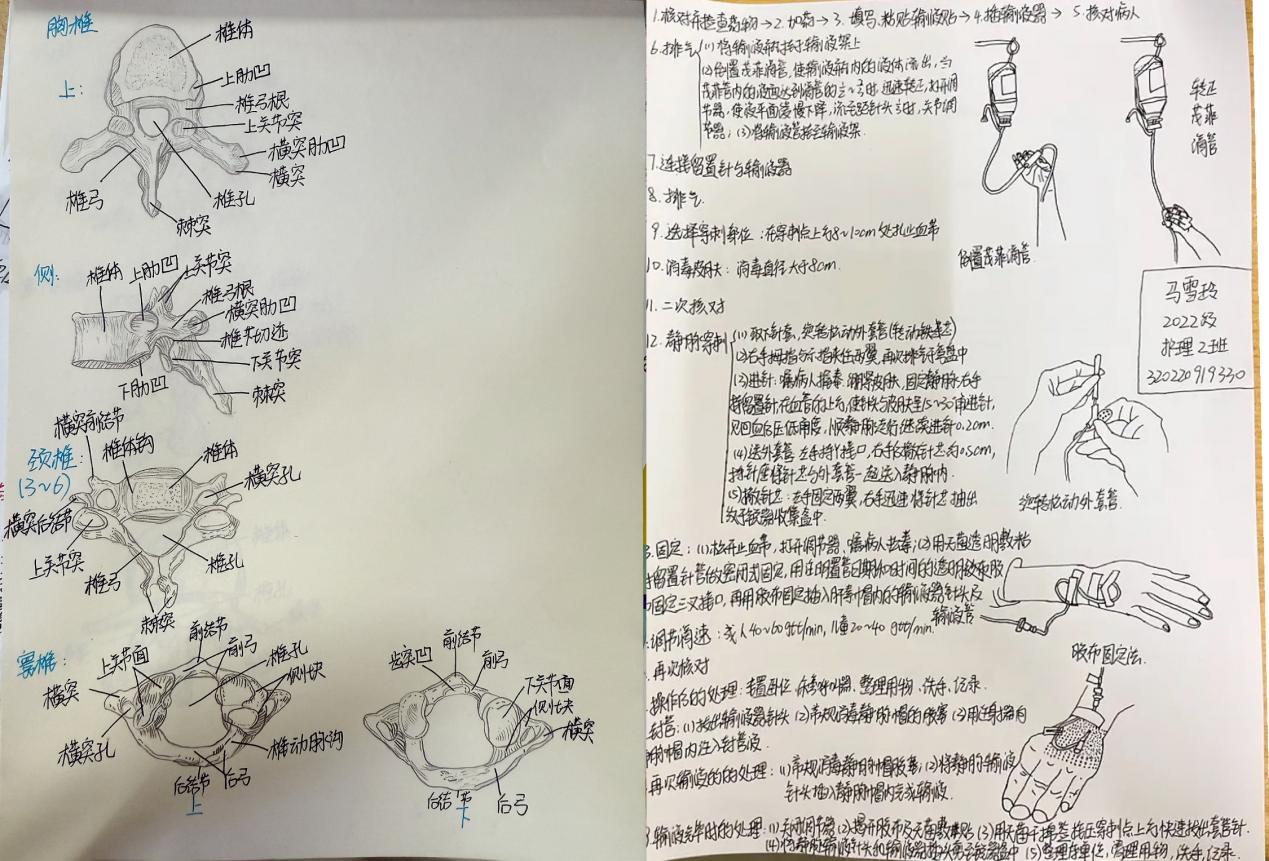 胸椎
椎体
上肋凹
上:
椎弓根
上关节突
横突肋凹
横突
椎弓
椎孔
棘突
侧:
椎体
上肋凹
上关节突
椎弓根
横突肋凹
椎骨切迹
下关节突
下肋凹
棘突
横突前结节
颈椎:
(3~6)
椎体钩
椎体
横突孔
横突后结节
上关节突
椎弓
椎孔
棘突
寰椎:
上关节面
前结节
前弓
椎孔
侧块
横突
横突孔
椎动脉沟
后结节
后弓
上
齿突凹
前结节
前弓
下关节面
侧块
横突
后结节
后弓
下
1.核对并检查药物→2.加药→3.填写,粘贴输液贴→4.插输液器→5.核对病人
6.排气
(1)将输液瓶挂于输液架上
(2)倒置茂菲滴管,使输液瓶内的液体流出,当
茂菲管内的液面达到滴管的
时,迅速转正,打开调
节器,使液平面缓慢下降,
关节调
节器;(3)将输液管挂至输液架.
7.连接留置针与输液器
8.排气.
9.选择穿刺部位:在穿刺点上方8~10cm处扎止血带
10.消毒皮肤:消毒直径大于8cm.
11.二次核对
12.静脉穿刺
(1)取下针套,旋转松动外套管(转动针芯)
(2)右手拇指与示指夹住两翼,再次排气于弯盘中
(3)进针:嘱病人握拳,绷紧皮肤,固定静脉,右手
持留置针,在血管的上方,使针头与皮肤呈15~30°角进针,
见回血后压低角度,顺静脉走行继续进针0.2cm.
(4)送外套管:左手持Y接口,右手后撤针芯约0.5cm,
持针座将针芯与外套管一起送入静脉内.
(5)撤针芯:左手固定两翼,右手迅速将针芯抽出
放于锐器收集盒中.
倒置茂菲滴管
转正
茂菲
滴管
马雪玲
2022级
护理2班
320220919330
旋转松动外套管.
固定:(1)松开止血带,打开调节器,嘱病人松拳;(2)用无菌透明敷贴
留置针管的密闭式固定,用注明置管日期和时间的透明胶
固定三叉接口,再用胶布固定插入肝素帽内的输液器针头及
输液管
调节滴速:成人40~60gtt/min,儿童20~40 gtt/min.
再次核对
操作后的处理:
整理用物,洗手,记录.
封管:(1)拔出输液器针头 (2)常规消毒静脉帽的胶塞 (3)用注射器向
脉帽内注入封管液
再次输液的的处理:(1)常规消毒静脉帽胶塞;(2)将静脉输液
针头插入静脉帽内完成输液.
胶布固定法.
输液完毕时的处理:(1)关闭调节器 (2)揭开胶布及无菌敷贴 (3)用无菌干棉签按压穿刺点上方,快速拔出套管针.
(5)整理床单位,清理用物,洗手,记录.